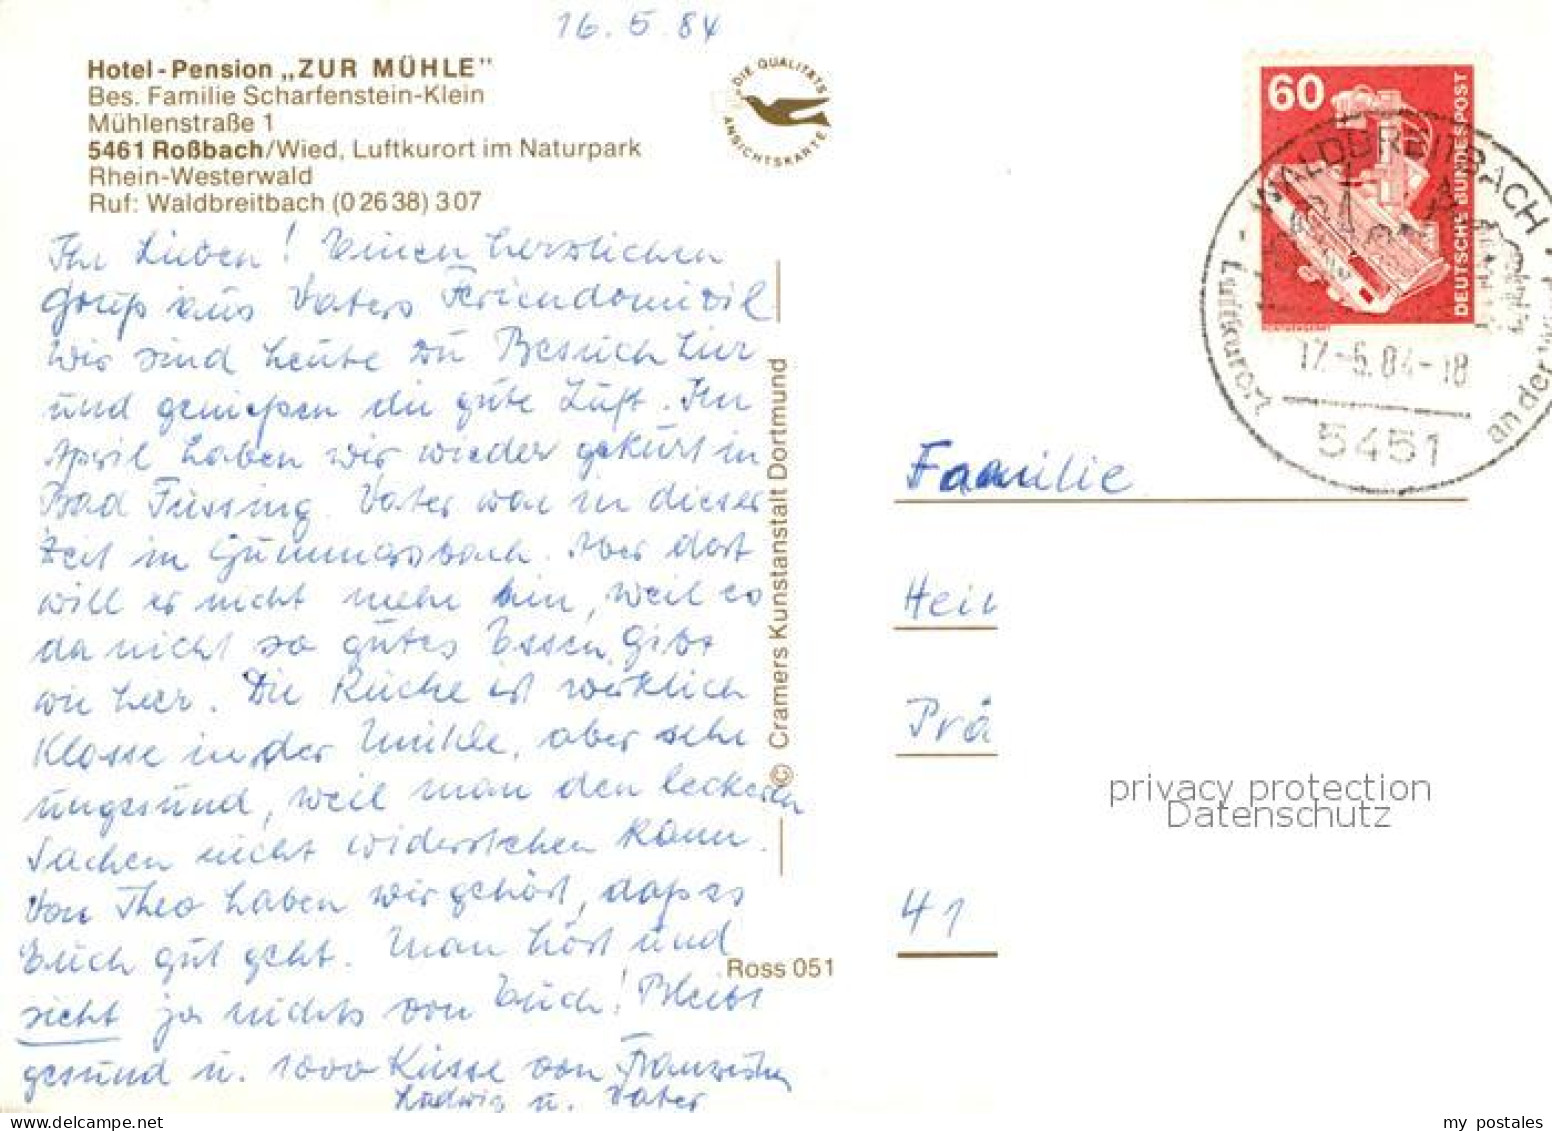 16.5.84
Hotel-Pension „ZUR MÜHLE"
Bes. Familie Scharfenstein-Klein
Mühlenstraße 1
5461 Roßbach/Wied, Luftkurort im Naturpark
Rhein-Westerwald
Ruf: Waldbreitbach (0 26 38) 3 07
Ihr Lieben! Einen herzlichen
Gruß aus Vaters Feriendomizil
Wir sind heute zu Besuch hier
und genießen die gute Luft. Im
April haben wir wieder gekurt in
Bad Füssing. Vater war in dieser
Zeit in Gummersbach. Aber dort
will er nicht mehr hin, weil es
da nicht so gutes Essen gibt
wie hier. Die Küche ist wirklich
Klasse in der Mühle, aber sehr
ungesund, weil man den leckeren
Sachen nicht widerstehen kann.
Von Theo haben wir gehört, daß es
Euch gut geht. Man hört und
sieht ja nichts von Euch! Bleibt
gesund u. 1000 Küsse von
Ludwig u. Vater
DIE QUALITÄTS
ANSICHTSKARTE
© Cramers Kunstanstalt Dortmund
Ross 051
60
DEUTSCHE BUNDESPOST
WALDBREITBACH
Luftkurort
an der Wied
17.-5.84-18
5451
Familie
Hei
Prä
41
privacy protection
Datenschutz
my postales